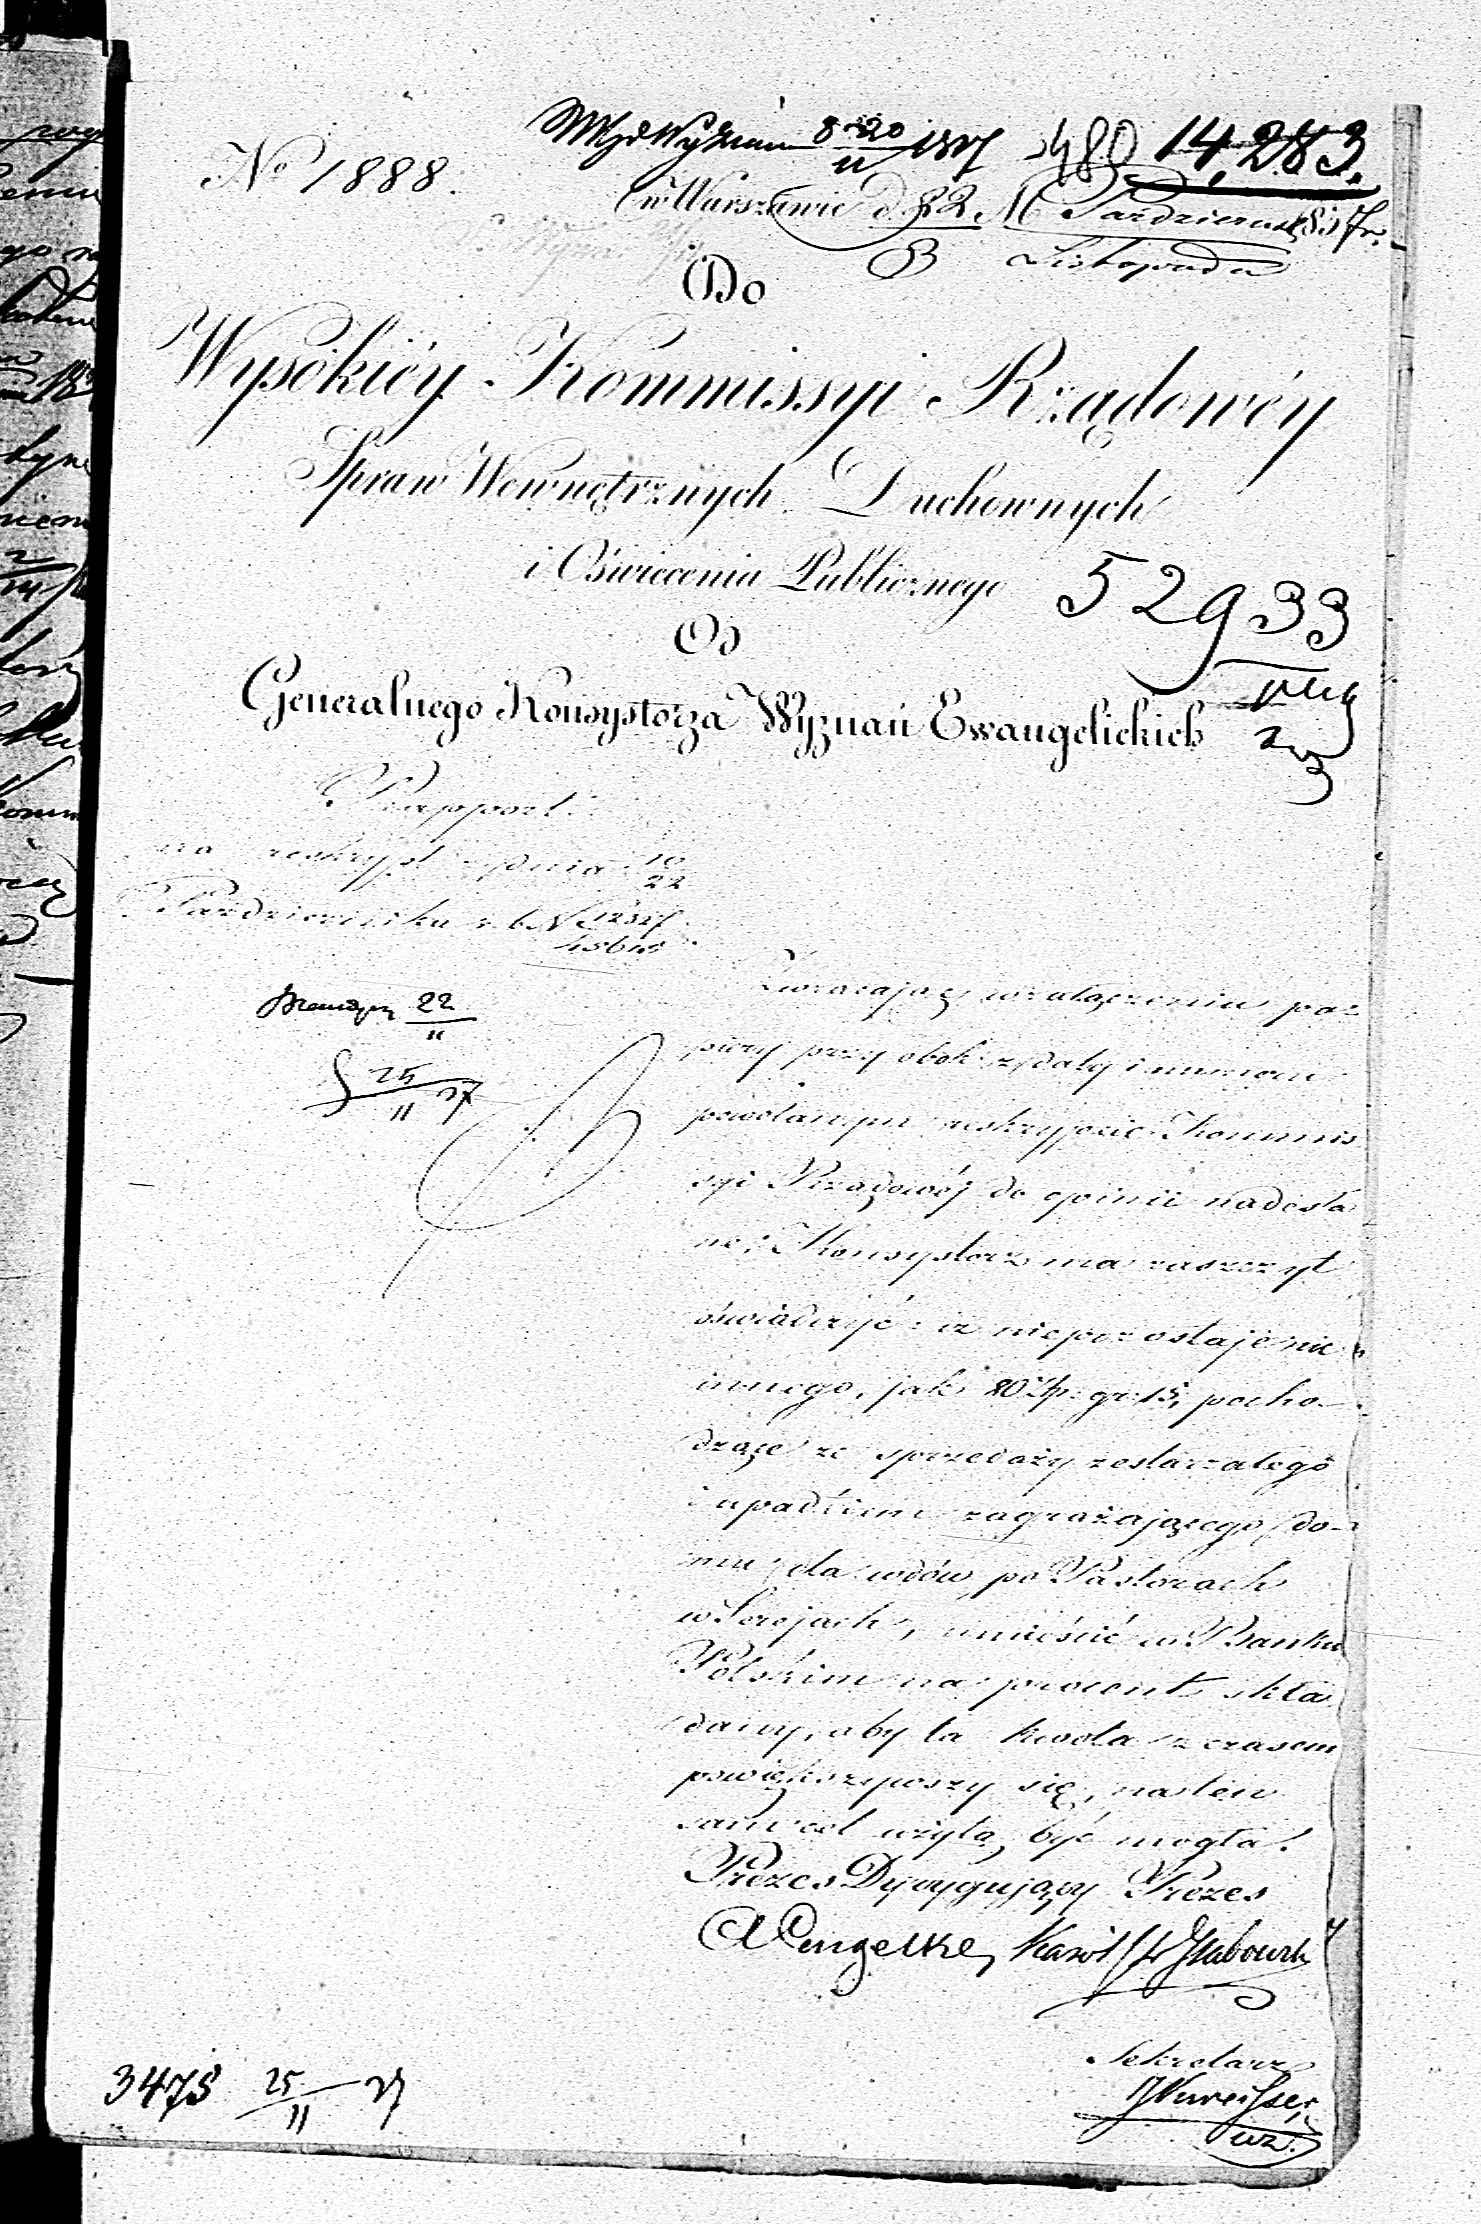 No 1888.
8/20 11 1837 480 14,283.
w Warszawie d. 22 M. Października 1837 r.
3 Listopada
Do
Wysokiéy Kommissyi Rządowéy
Spraw Wewnętrznych Duchownych
i Oświecenia Publicznego
52933
Od
Generalnego Konsystorza Wyznań Ewangelickich
Rapport
na reskrypt z dnia 10/22
Października r. b. N
22/11
25/11 37
Zwracając w załączeniu pa-
piery przy obok z daty i numeru
powołanym reskrypcie Kommis
syi Rządowéj do opinii nadesła
ne; Konsystorz ma zaszczyt
oświadczyć: iż niepozostaje nic
innego, jak 80 Złp. gr. 15, pocho-
dzące ze sprzedaży zestarzałego
i upadkiem zagrażającego do-
mu dla wdów po Pastorach
w Serejach, umieścić w Banku
Polskim na procent skła
dany, aby ta kwota z czasem
powiększywszy się, na ten
sam cel użytą być mogła.
Prezes Dyrygujący Prezes
Engelke Karol
Sekretarz
wz.
3478 25/11 37